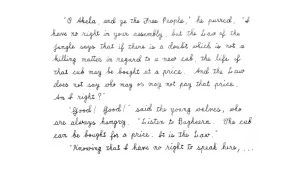 "O Akela, and ye the Free People," he purred, "I
have no right in your assembly, but the Law of the
Jungle says that if there is a doubt which is not a
killing matter in regard to a new cub, the life of
that cub may be bought at a price. And the Law
does not say who may or may not pay that price.
Am I right?"
"Good! Good!" said the young wolves, who
are always hungry. "Listen to Bagheera. The cub
can be bought for a price. It is the Law."
"Knowing that I have no right to speak here, ...